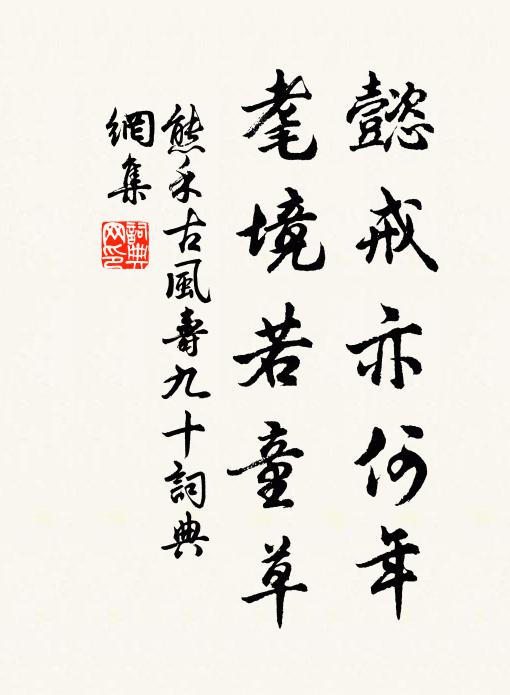 懿戒亦何年
耄境若童草
熊禾古風壽九十詞典
網集
詞典
网印